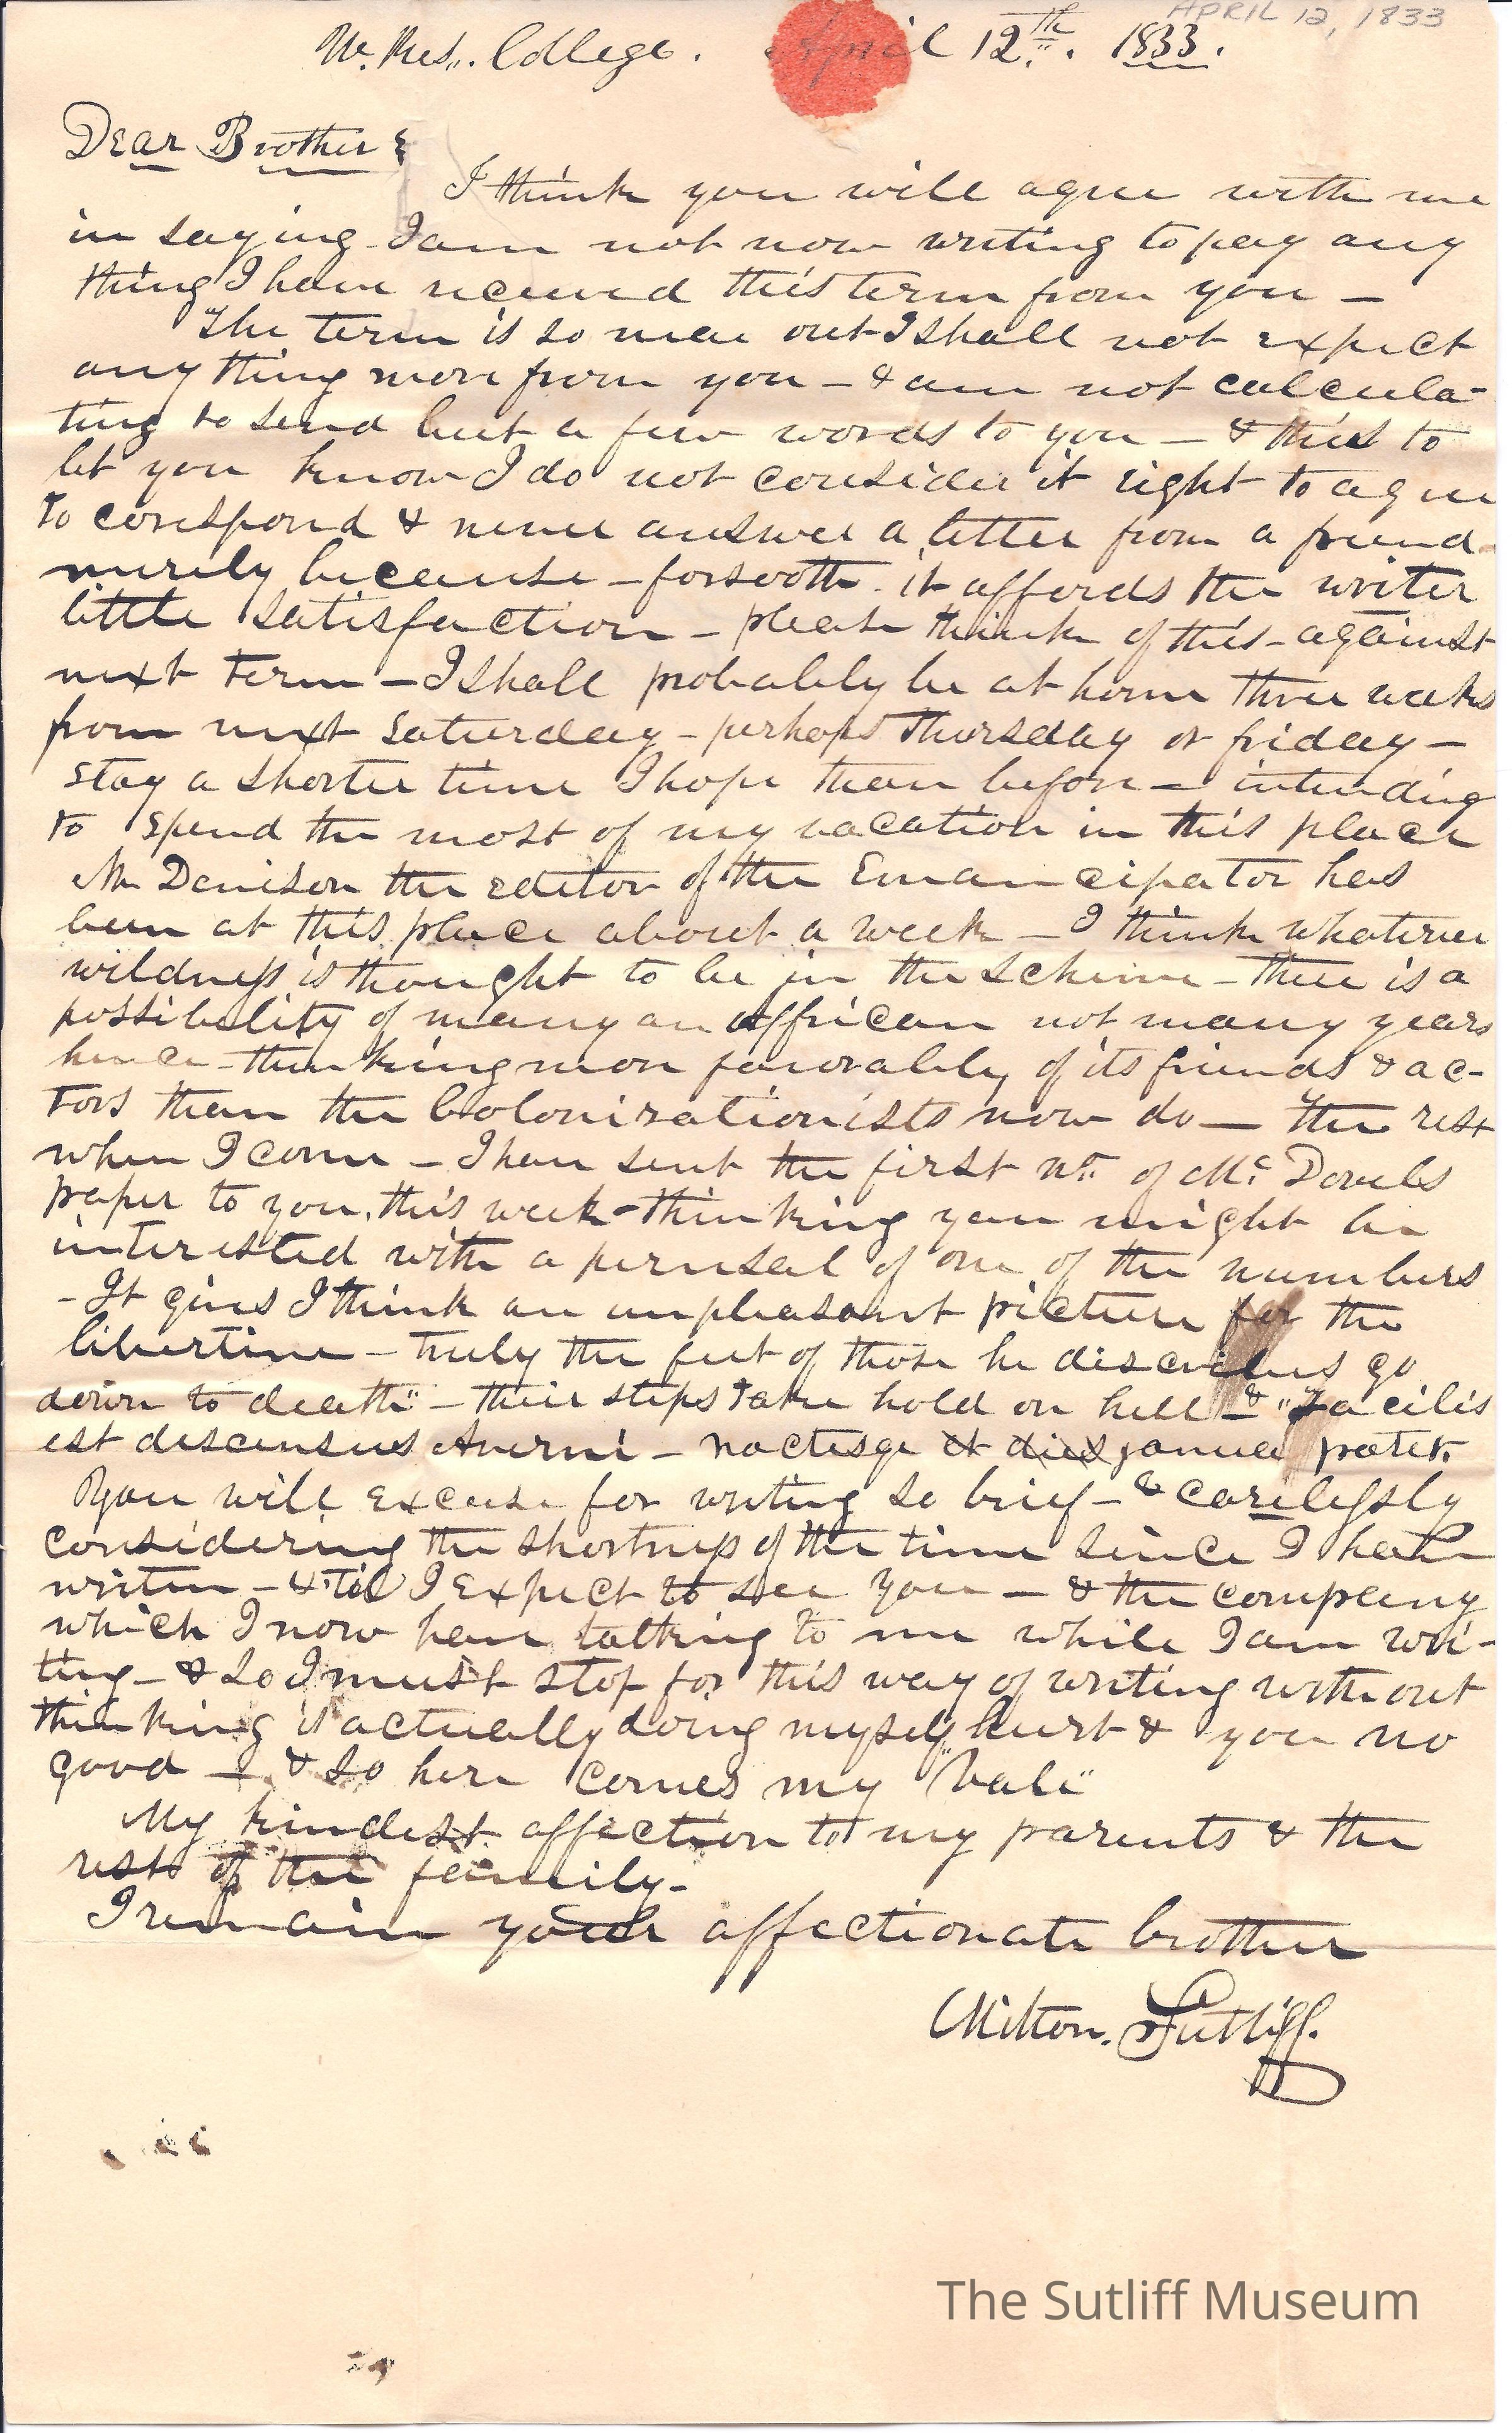 APRIL 12, 1833
W. Res. College. April 12th. 1833.
Dear Brother
I think you will agree with me
in saying I am not now writing to pay any
thing I have received this term from you —
The term is so near out I shall not expect
any thing more from you — & am not calcula-
ting to send but a few words to you — & this to
let you know I do not consider it right to agree
to correspond & never answer a letter from a friend
merely because — forsooth it affords the writer
little satisfaction — please think of this — against
next term — I shall probably be at home three weeks
from next Saturday — perhaps Thursday or friday —
stay a shorter time I hope than before — intending
to spend the most of my vacation in this place
Mr Denison the editor of the Emancipator has
been at this place about a week — I think whatever
wildness is thought to be in the scheme — there is a
possibility of many an affrican not many years
hence — thinking more favorably of its friends & ac-
tors than the Colonizationists now do — The rest
when I come — I have sent the first No. of Mc. Dowels
paper to you this week — thinking you might be
interested with a perusal of one of the numbers
- It gives I think an unpleasant picture for the
libertine — truly the feet of those he discribes go
down to death" — their steps take hold on hell — & "Facilis
est discensus Averni — noctesqe et dies janua patet.
You will excuse for writing so brief — & carelessly
considering the shortness of the time since I have
written — & til I expect to see you — & the company
which I now have talking to me while I am wri-
ting — & so I must stop for this way of writing without
thinking is actually doing myself hurt & you no
good — & so here comes my "Vale"
My kindest affection to my parents & the
rest of the family -
I remain your affectionate brother
Milton. Sutliff.
The Sutliff Museum